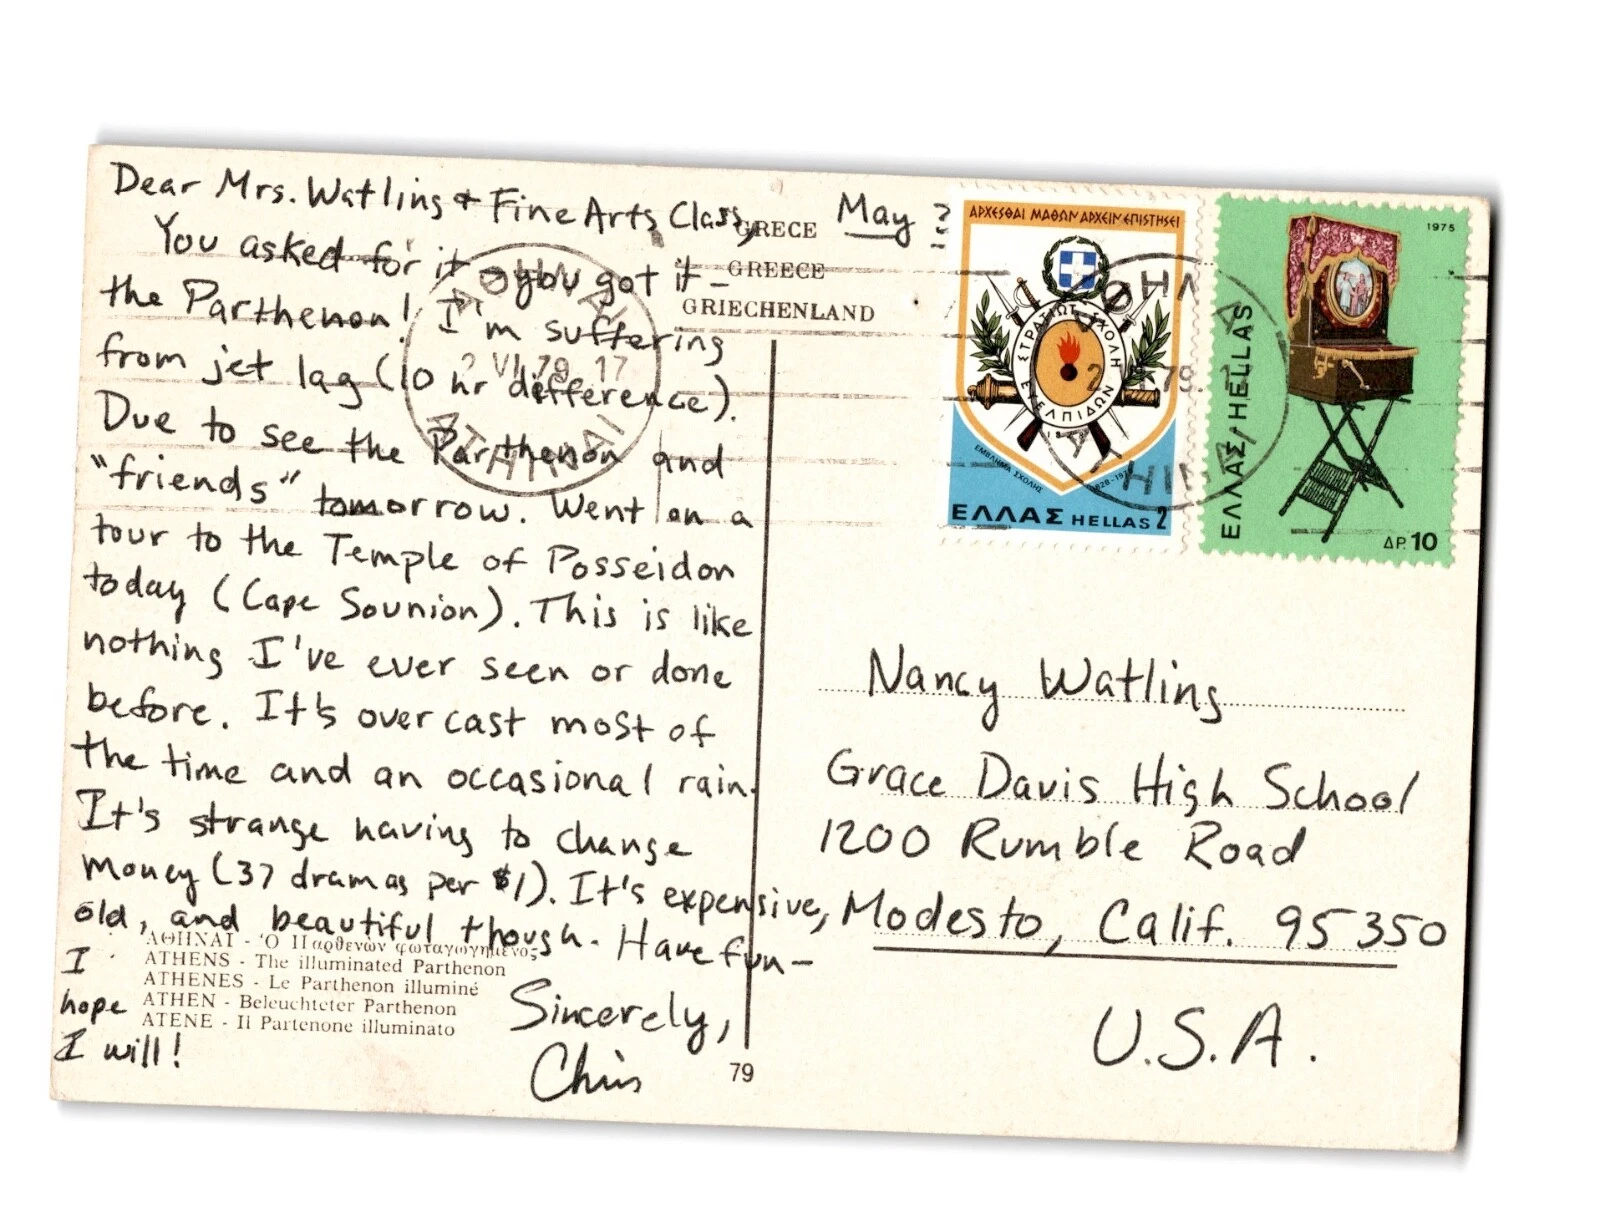 Dear Mrs. Watling & Fine Arts Class,
May ?
You asked for it - you got it -
the Parthenon! I'm suffering
from jet lag (10 hr difference).
Due to see the Parthenon and
"friends" tomorrow. Went on a
tour to the Temple of Posseidon
today (Cape Sounion). This is like
nothing I've ever seen or done
before. It's overcast most of
the time and an occasional rain.
It's strange having to change
money (37 dramas per $1). It's expensive,
old, and beautiful though. Have fun-
I
hope
I will!
Sincerely,
Chris
GRECE
GREECE
GRIECHENLAND
ΑΘΗΝΑΙ - Ὁ Παρθενών φωταγωγημένος
ATHENS - The illuminated Parthenon
ATHENES - Le Parthenon illuminé
ATHEN - Beleuchteter Parthenon
ATENE - Il Partenone illuminato
79
ΑΘΗΝΑΙ
2 VI 79. 17
ΑΤΗΙΝΑΙ
ΑΡΧΕΣΘΑΙ ΜΑΘΩΝ ΑΡΧΕΙΝ ΕΠΙΣΤΗΣΕΙ
ΣΤΡΑΤΙΩΤ. ΣΧΟΛΗ
ΕΥΕΛΠΙΔΩΝ
ΕΜΒΛΗΜΑ ΣΧΟΛΗΣ
ΕΛΛΑΣ HELLAS 2
1975
ΕΛΛΑΣ/HELLAS
ΔΡ. 10
Nancy Watling
Grace Davis High School
1200 Rumble Road
Modesto, Calif. 95350
U.S.A.